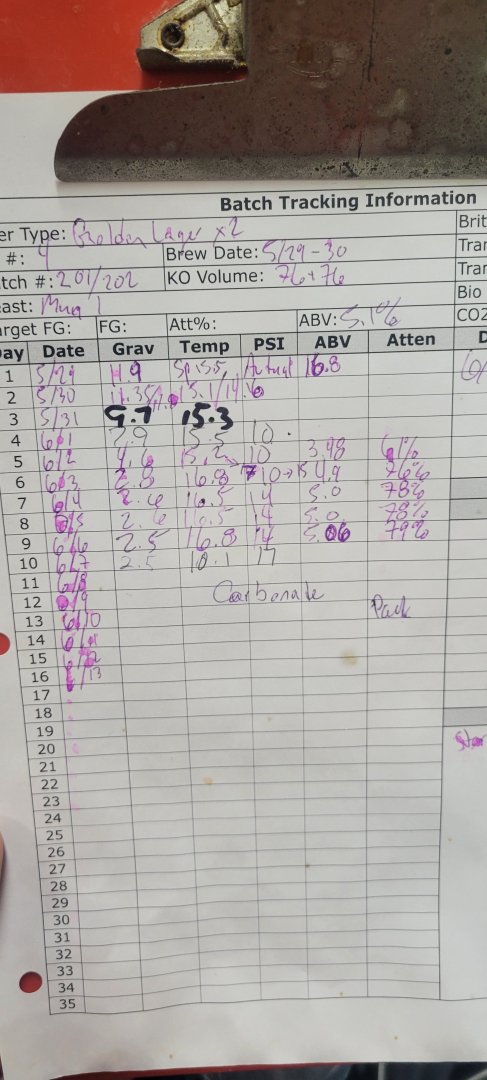 Batch Tracking Information
er Type: Golden Lager x2 Brit
#: 4 Brew Date: 5/29-30 Tran
tch #: 201/202 KO Volume: 76+76 Tran
east: Mug 1 Bio
arget FG: FG: Att%: ABV: 5.1% CO2
Day Date Grav Temp PSI ABV Atten D
1 5/29 11.9 Sp 15.5, Actual 16.8
2 5/30 11.35/ 15.1/14.6
3 5/31 9.7 15.3
4 6/1 7.9 15.5 10
5 6/2 4.6 15.2 10 3.98 61%
6 6/3 2.8 16.8 10→15 4.9 76%
7 6/4 2.6 16.5 14 5.0 78%
8 6/5 2.6 16.5 14 5.0 78%
9 6/6 2.5 16.8 14 5.06 79%
10 6/7 2.5 10.1 17
11 6/8
12 6/9 Carbonate
13 6/10 Pack
14 6/11
15 6/12
16 6/13
17
18
19
20
21
22
23
24
25
26
27
28
29
30
31
32
33
34
35